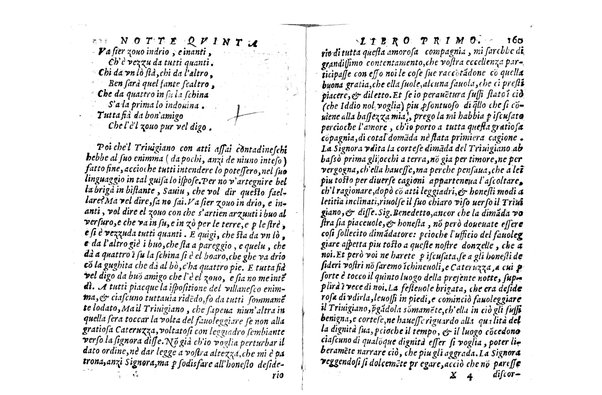 NOTTE QVINTA
Va sier zouo indrio, e inanti,
Ch'è vezzù da tutti quanti.
Chi da vn lò stà, chi da l'altro,
Ben sarà quel fante scaltro,
Che da quattro in sù la schina
S'a la prima lo indouina.
Tutta fià da bon'amigo
Che l'è'l zouo pur vel digo.
Poi che'l Triuigiano con atti assai contadineschi
hebbe al suo enimma (da pochi, anzi de niuno inteso)
fatto fine, accioche tutti intendere lo potessero, nel suo
linguaggio in tal guisa lo ispose. Per no v'artegnire bel
la brigà in bistante, Sauìu, che vol dir questo fae
lare? Ma vel dire, se no sai. Va sier zouo in drio, e in-
anti, vol dire el zouo con che s'artien arzunti i buo al
versuro, e che va in su, e in zò per le terre, e per le strè,
e sì vezzuda tutti quanti. E quigi, che sta da vn lò,
e da l'altro giè i buò, che stà a pareggio, e quelu, che
dà a quattro in sù la schina fè el boaro, che ghe dà vrio
cò la gughita che dà al bò, c'ha quattro pie. E tutta fià
vel digo da buò amigo che l'è'l zouo, e sia no nimistà
mia. A tutti piacque la ispositione del villanesco enim-
ma, & ciascuno tuttauia ridēdo, fo da tutti sommamē
te lodato, Ma il Triuigiano, che sapeua niun'altra in
quella sera toccar la volta del fauoleggiare se non alla
gratiosa Cateruzza, voltatosi con leggiadro sembiante
verso la signora disse. Nō già ch'io voglia perturbar il
dato ordine, nè dar legge a vostra altezza, che mi è pa
trona, anzi Signora, ma p sodisfare all'honesto deside-
rio
LIBRO PRIMO. 160
rio di tutta questa amorosa compagnia, mi sarebbe di
grandissimo contentamento, che vostra eccellenza par-
ticipasse con esso noi le cose sue raccōtādone con quella
buona gratia, che ella suole, alcuna fauola, che ci presti
piacere, & diletto. Et se io perauētura fussi stato (il
che Iddio nol voglia) piu psontuoso di q̄llo che si cō
uiene alla bassezza mia, prego la mi habbia p iscusato
percioche l'amore, ch'io porto a tutta questa gratiosa
compagnia, di cotal domāda nè stata primiera cagione.
La Signora vdita la cortese dimāda del Triuigiano ab
bassò prima gli occhi a terra, nō già per timore, ne per
vergogna, che ella hauesse, ma perche istimaua, che a lei
piu tosto per diuerse cagioni apparteneua l'ascoltare,
ch'l ragionare, dopò con atti leggiadri, & honesti modi a
letitia inclinati, riuolse il suo chiaro viso verso il Triui
giano, & disse. Sig. Benedetto, ancor che la dimāda vo
stra sia piaceuole, & honesta, nō però douerste essere
così sollecito dimādatore: percioche l'ufficio del fauoleg
giare aspetta piu tosto a queste nostre donzelle, che a
noi. Et però voi ne harete p iscusata, se a gli honesti de
sideri vostri nō saremo ischineuoli, e Cateruzza, a cui p
sorte è tocco il quinto luogo della presente notte, sup-
plirà in vece di noi. La festeuole brigata, che era deside
rosa di vdirla, leuossi in piedi, e cominciò fauoreggiare
il Triuigiano, p̄gādola sōmamēte, ch'ella in ciò gli fusse
benigna, e cortese, ne hauesse riguardo alla qualità del
la dignità sua, percioche il tempo, & il luogo cōcedono
ciascuno di qualonque dignità esser si voglia, poter li-
beramēte narrare ciò, che piu gli aggrada. La Signora
veggendosi sì dolcemēte pregare, acciò che nō paresse
X 4 discor-